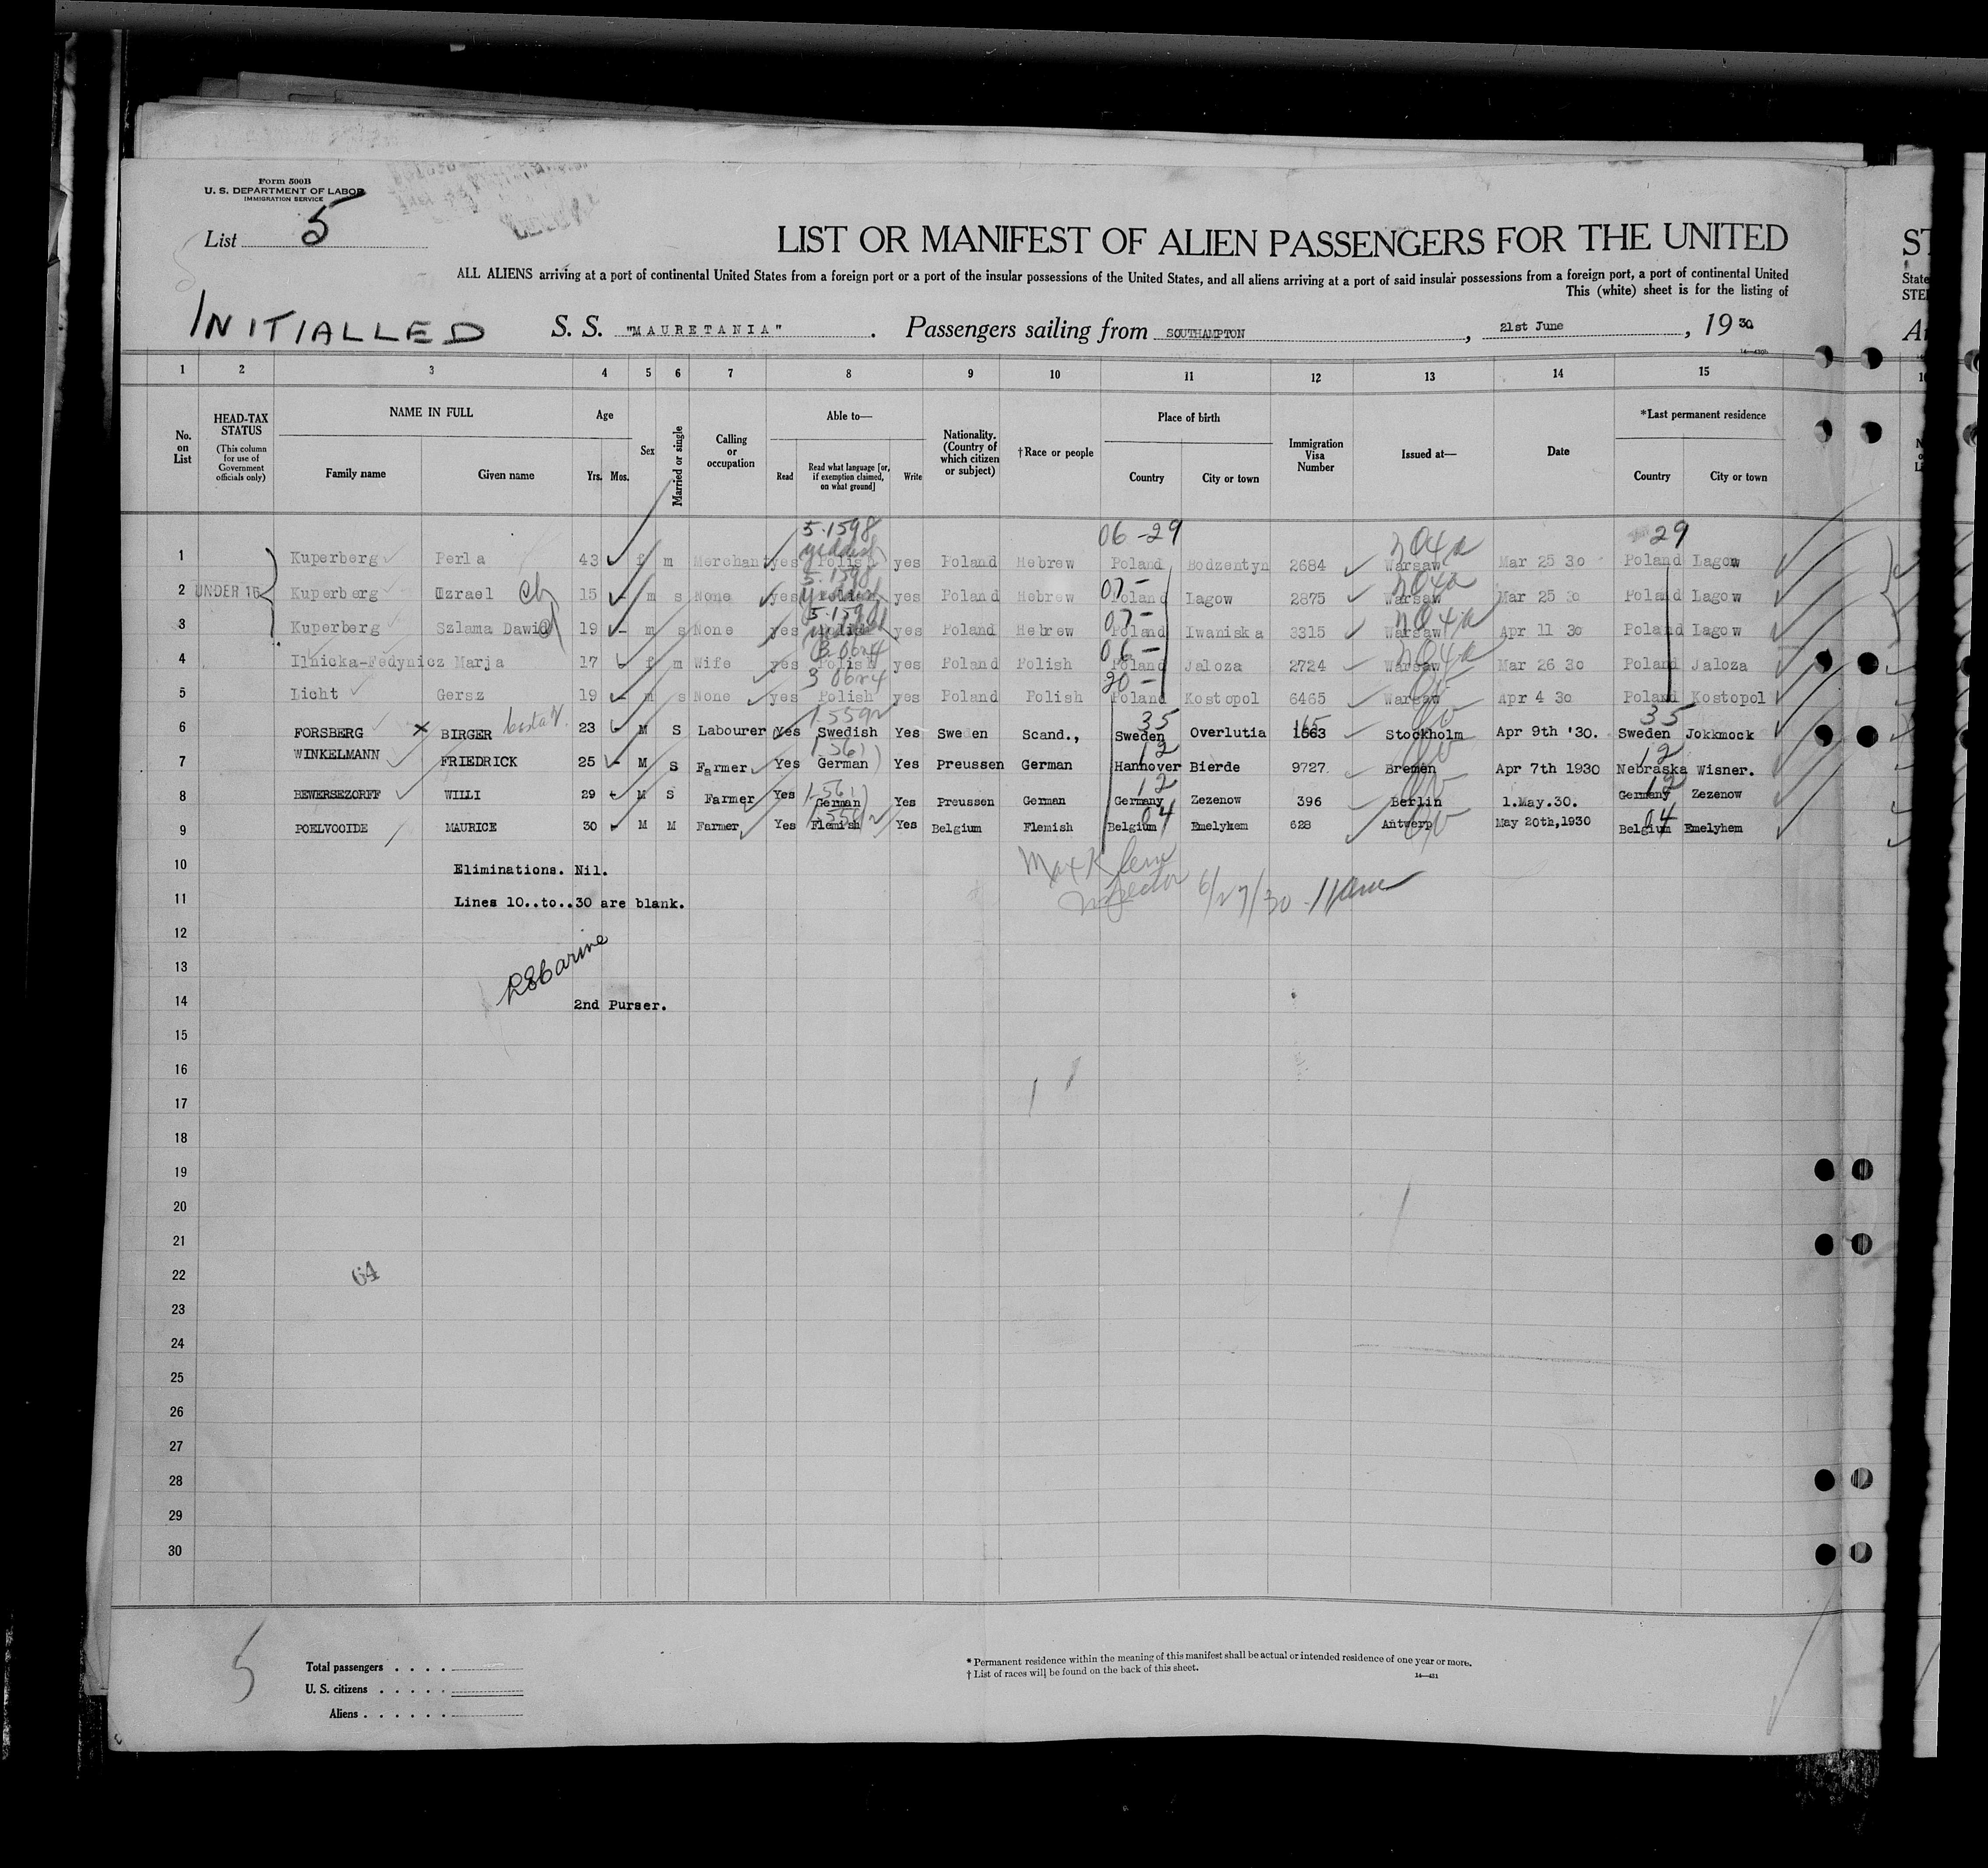 Form 500B
U. S. DEPARTMENT OF LABOR
IMMIGRATION SERVICE
List 5
LIST OR MANIFEST OF ALIEN PASSENGERS FOR THE UNITED
ALL ALIENS arriving at a port of continental United States from a foreign port or a port of the insular possessions of the United States, and all aliens arriving at a port of said insular possessions from a foreign port, a port of continental United
This (white) sheet is for the listing of
INITIALLED S. S. "MAURETANIA". Passengers sailing from SOUTHAMPTON, 21st June, 1930
1 2 3 4 5 6 7 8 9 10 11 12 13 14 15
No. on List
HEAD-TAX STATUS (This column for use of Government officials only)
NAME IN FULL Family name Given name
Age Yrs. Mos.
Sex
Married or single
Calling or occupation
Able to— Read Read what language [or, if exemption claimed, on what ground] Write
Nationality. (Country of which citizen or subject)
†Race or people
Place of birth Country City or town
Immigration Visa Number
Issued at—
Date
*Last permanent residence Country City or town
5-1598 06-29 29
1 Kuperberg Perla 43 f m Merchant yes Polish yes Poland Hebrew Poland Bodzentyn 2684 Warsaw Mar 25 30 Poland Lagow
2 UNDER 16 Kuperberg Izrael 15 m s None yes yes Poland Hebrew Poland Lagow 2875 Warsaw Mar 25 30 Poland Lagow
3 Kuperberg Szlama Dawid 19 m s None yes yes Poland Hebrew Poland Iwaniska 3315 Warsaw Apr 11 30 Poland Lagow
4 Ilnicka-Fedynicz Marja 17 f m Wife yes Polish yes Poland Polish Poland Jaloza 2724 Warsaw Mar 26 30 Poland Jaloza
5 Licht Gersz 19 m s None yes Polish yes Poland Polish Poland Kostopol 6465 Warsaw Apr 4 30 Poland Kostopol
6 FORSBERG X BIRGER 23 M S Labourer Yes Swedish Yes Sweden Scand., Sweden Overlutia Stockholm Apr 9th '30. Sweden Jokkmock
7 WINKELMANN FRIEDRICK 25 M S Farmer Yes German Yes Preussen German Hannover Bierde 9727 Bremen Apr 7th 1930 Nebraska Wisner.
8 BEWERSEZORFF WILLI 29 M S Farmer Yes German Yes Preussen German Germany Zezenow 396 Berlin 1.May.30. Germany Zezenow
9 POELVOOIDE MAURICE 30 M M Farmer Yes Flemish Yes Belgium Flemish Belgium Emelykem 628 Antwerp May 20th,1930 Belgium Emelyhem
10 Eliminations. Nil.
11 Lines 10..to..30 are blank. 6/27/30
12
13
14 2nd Purser.
15
16
17
18
19
20
21
22 64
23
24
25
26
27
28
29
30
5
Total passengers
U. S. citizens
Aliens
* Permanent residence within the meaning of this manifest shall be actual or intended residence of one year or more.
† List of races will be found on the back of this sheet.
14—431